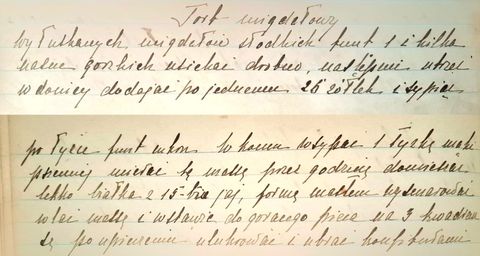 Tort migdałowy
Wyłuskanych migdałów słodkich funt 1 i kilka
gorzkich usiekać drobno, następnie utrzeć
w donicy dodając po jednemu 26 żółtek i sypiąc
po łyżce funt cukru w końcu wsypać 1 łyżkę mąki
pszennej mieszać tę massę przez godzinę domieszać
lekko białka z 15-tu jaj, formę masłem wysmarować
wlać massę i wstawić do gorącego pieca na 3 kwadranse
po upieczeniu ulukrować i ubrać konfiturami